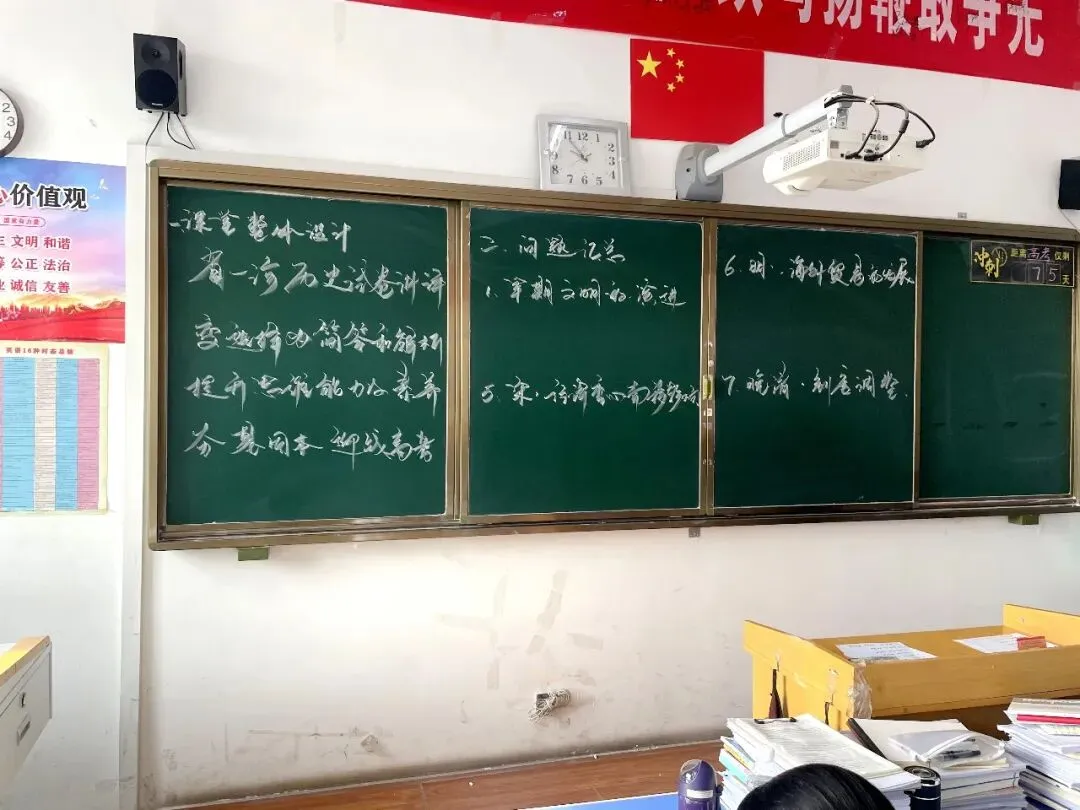 扬鞭取争光
价值观
文明 和谐
公正 法治
诚信 友善
英语16种时态总结
一课堂整体设计
省一诊历史试卷讲评
变选择为简答和解析
提升思维能力及素养
夯基固本 迎战高考
二.问题汇总
1.早期文明和演进
5.宋.经济重心南移
6.明.海外贸易和发展
7.晚清.制度调整.
冲刺 距离 高考 仅剩
75天